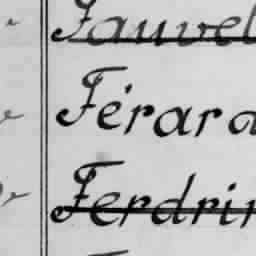 Fauvel
Férard
Ferdrin